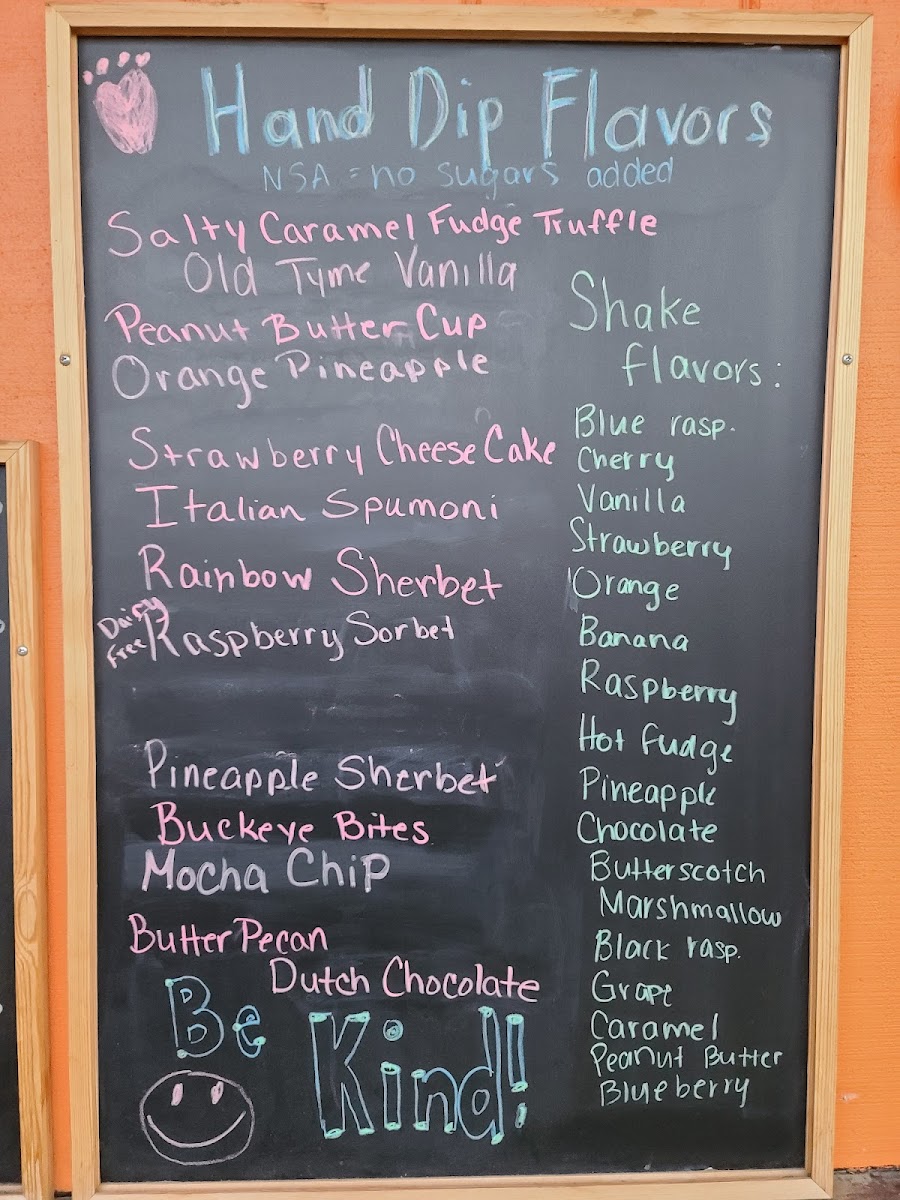 Hand Dip Flavors
NSA = no sugars added
Salty Caramel Fudge Truffle
Old Tyme Vanilla
Peanut Butter Cup
Orange Pineapple
Strawberry Cheese Cake
Italian Spumoni
Rainbow Sherbet
Dairy Free Raspberry Sorbet
Pineapple Sherbet
Buckeye Bites
Mocha Chip
Butter Pecan
Dutch Chocolate
Be
Kind!
Shake
flavors:
Blue rasp.
Cherry
Vanilla
Strawberry
Orange
Banana
Raspberry
Hot fudge
Pineapple
Chocolate
Butterscotch
Marshmallow
Black rasp.
Grape
Caramel
Peanut Butter
Blueberry